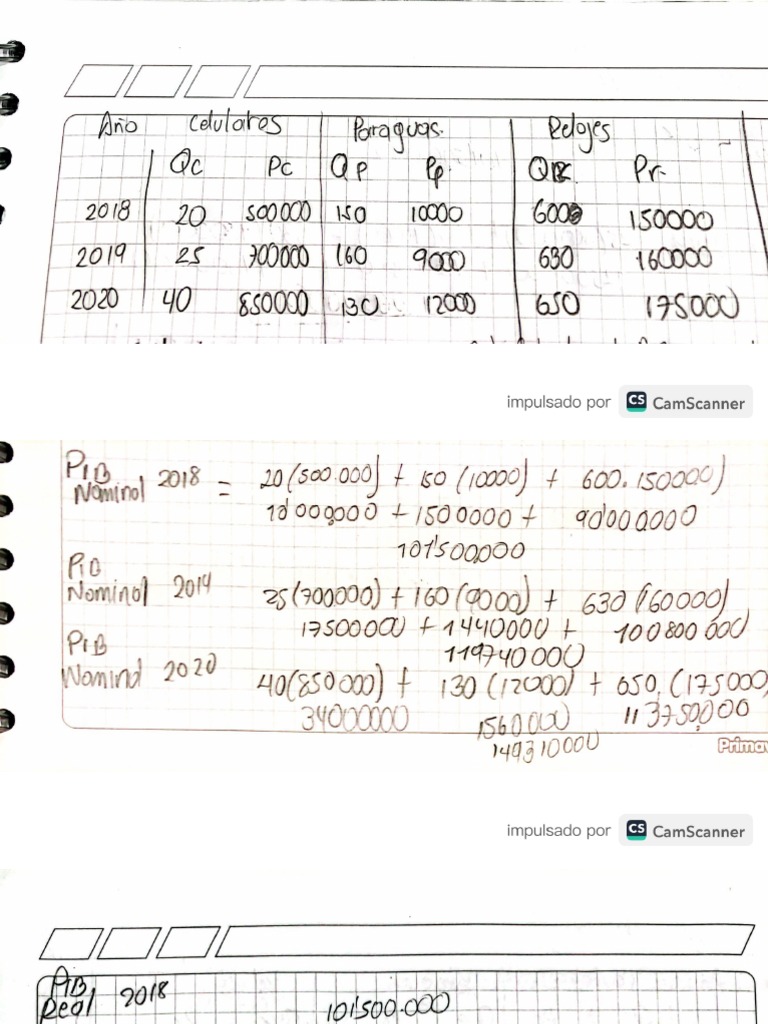 Año Celulares Paraguas. Relojes
Qc Pc Qp Pp. Pr.
2018 20 500000 150 10000 600 150000
2019 25 700000 160 9000 630 160000
2020 40 850000 130 12000 650 175000
impulsado por CS CamScanner
PIB
Nominal 2018 = 20(500.000) + 150 (10000) + 600.150000)
10'000,000 + 1500000 + 90'000.000
101'500,000
PIB
Nominal 2014 25(700000) + 160(9000) + 630 (160000)
17500000 + 1440000 + 100800000
119740000
PIB
Nominal 2020 40(850000) + 130 (12000) + 650. (175000)
34000000 1560000 113750,000
149310000
Prima
impulsado por CS CamScanner
PIB,
Real 2018 101'500.000